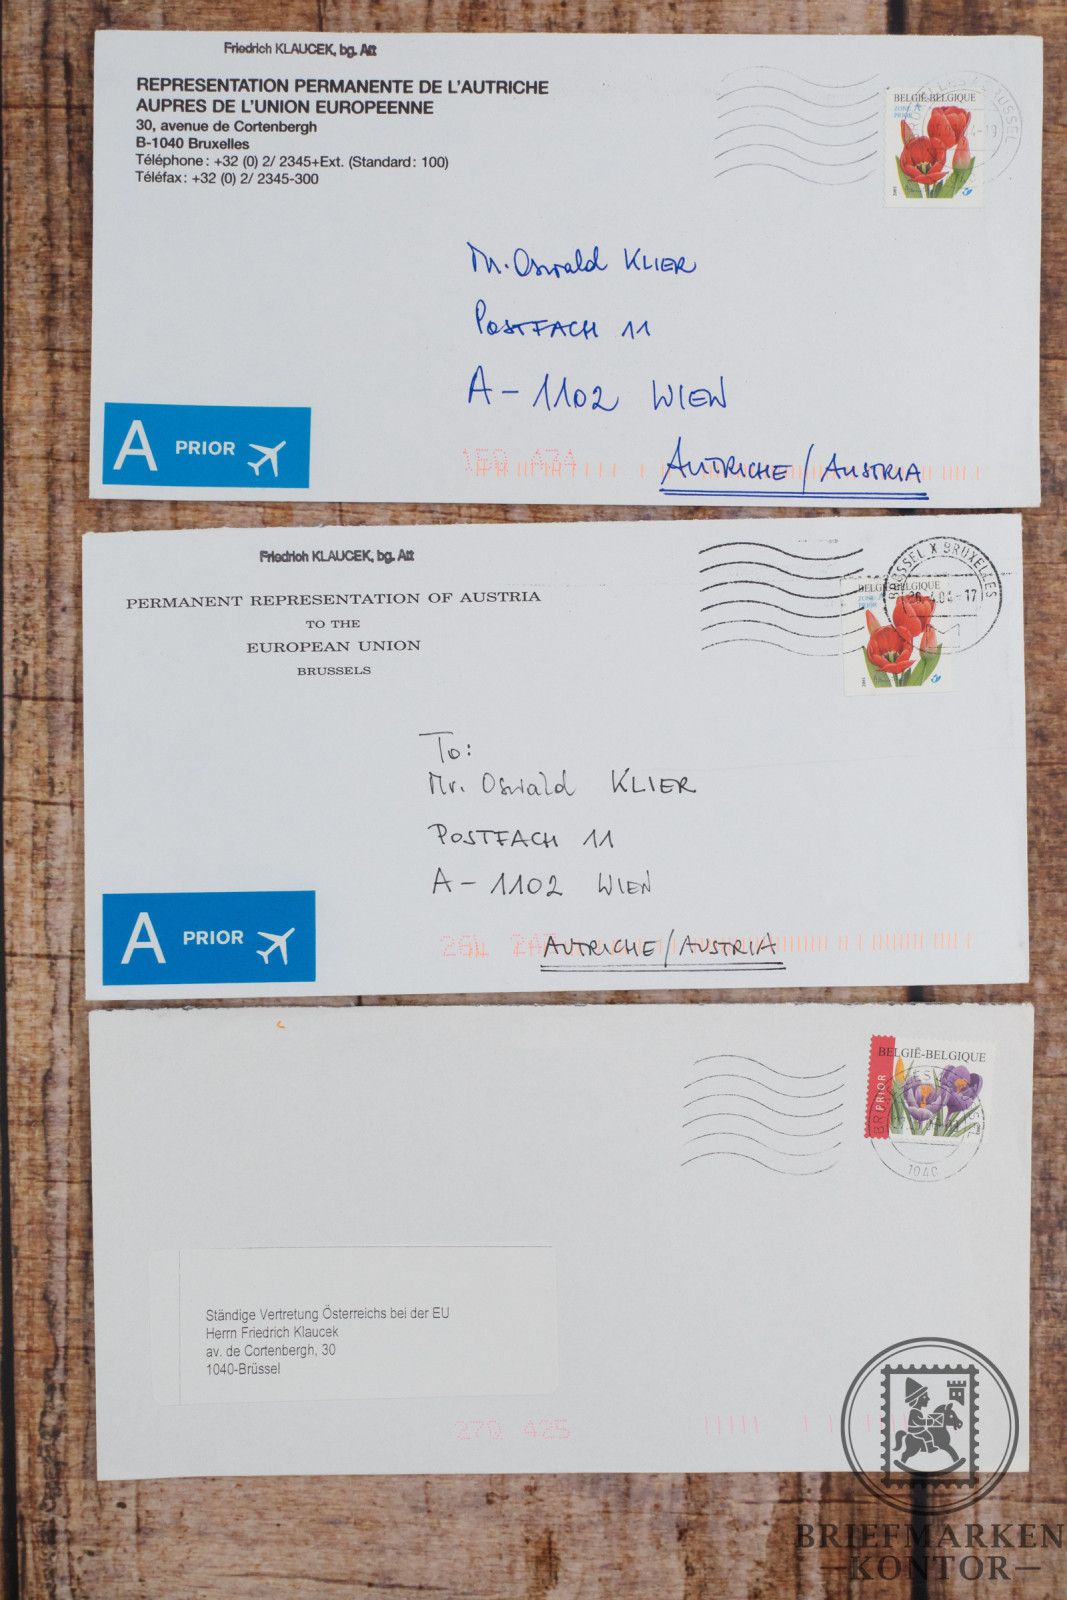 Friedrich KLAUCEK, bg. Att
REPRESENTATION PERMANENTE DE L'AUTRICHE
AUPRES DE L'UNION EUROPEENNE
30, avenue de Cortenbergh
B-1040 Bruxelles
Téléphone: +32 (0) 2/ 2345+Ext. (Standard: 100)
Téléfax: +32 (0) 2/ 2345-300
BELGIË-BELGIQUE
ZONE A
PRIOR
Mr. Oswald KLIER
POSTFACH 11
A-1102 WIEN
AUTRICHE/AUSTRIA
A PRIOR
Friedrich KLAUCEK, bg. Att
PERMANENT REPRESENTATION OF AUSTRIA
TO THE
EUROPEAN UNION
BRUSSELS
BRUSSEL X BRUXELLES
BELGIË-BELGIQUE
ZONE A
PRIOR
To:
Mr. Oswald KLIER
POSTFACH 11
A-1102 WIEN
AUTRICHE/AUSTRIA
A PRIOR
BELGIË-BELGIQUE
PRIOR
1040
Ständige Vertretung Österreichs bei der EU
Herrn Friedrich Klaucek
av. de Cortenbergh, 30
1040-Brüssel
27Q 425
BRIEFMARKEN
KONTOR